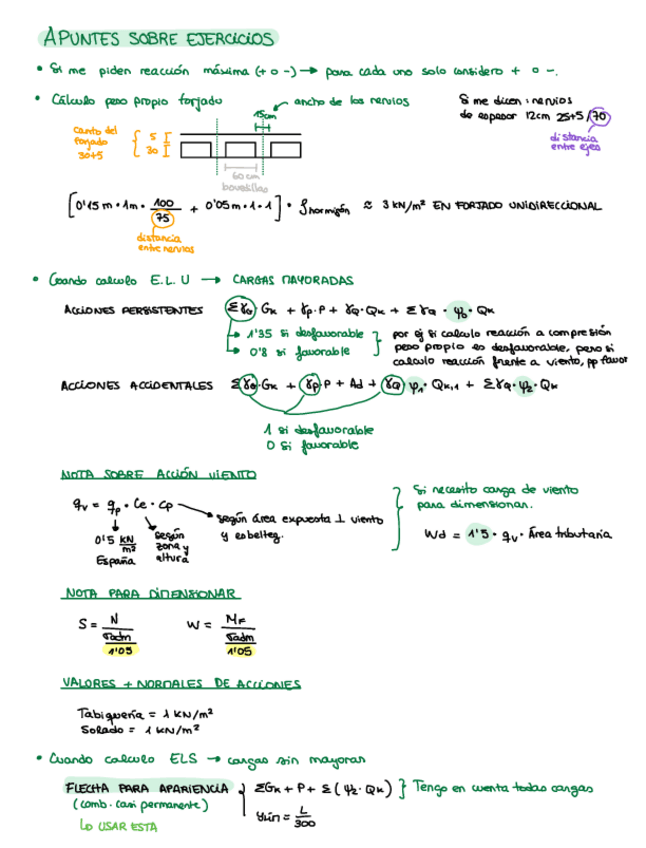 APUNTES SOBRE EJERCICIOS
• Si me piden reacción máxima (+ o -) → para cada uno solo considero + o -.
• Cálculo peso propio forjado
ancho de los nervios
15cm
Si me dicen: nervios
de espesor 12cm 25+5/70
distancia
entre ejes
canto del
forjado
30+5
5
30
60 cm
bovedillas
[0'15 m · 1m · 100/75 + 0'05 m · 1 · 1] · ρhormigón ≈ 3 KN/m² EN FORJADO UNIDIRECCIONAL
distancia
entre nervios
• Cuando calculo E.L.U → CARGAS MAYORADAS
ACCIONES PERSISTENTES ΣγG · Gk + γp · P + γQ · Qk + Σγa · ψ0 · Qk
1'35 si desfavorable
0'8 si favorable
por ej si calculo reacción a compresión
peso propio es desfavorable, pero si
calculo reacción frente a viento, pp favor
ACCIONES ACCIDENTALES ΣγG · Gk + γp · P + Ad + γQ ψ1 · Qk,1 + Σγq · ψ2 · Qk
1 si desfavorable
0 si favorable
NOTA SOBRE ACCIÓN VIENTO
qv = qp · Ce · Cp
según área expuesta ⊥ viento
y esbeltez.
0'5 KN/m²
España
según
zona y
altura
Si necesito carga de viento
para dimensionar.
Wd = 1'5 · qv · Área tributaria
NOTA PARA DIMENSIONAR
S = N / (σadm / 1'05)
W = MF / (σadm / 1'05)
VALORES + NORMALES DE ACCIONES
Tabiquería = 1 KN/m²
Solado = 1 KN/m²
• Cuando calculo ELS → cargas sin mayorar
FLECHA PARA APARIENCIA
(comb. casi permanente)
LO USAR ESTA
ΣGk + P + Σ(ψ2 · Qk) } Tengo en cuenta todas cargas
ylim = L/300